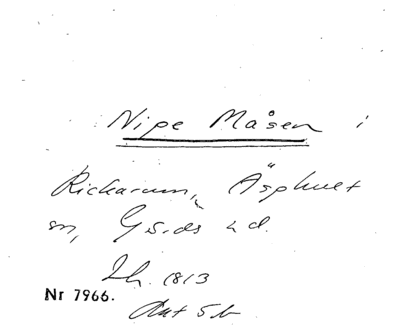 Nipe Måsen i
Rickarum, Äsphult
sn, Gärds hd.
Lh. 1813
Nr 7966.
Akt 5b